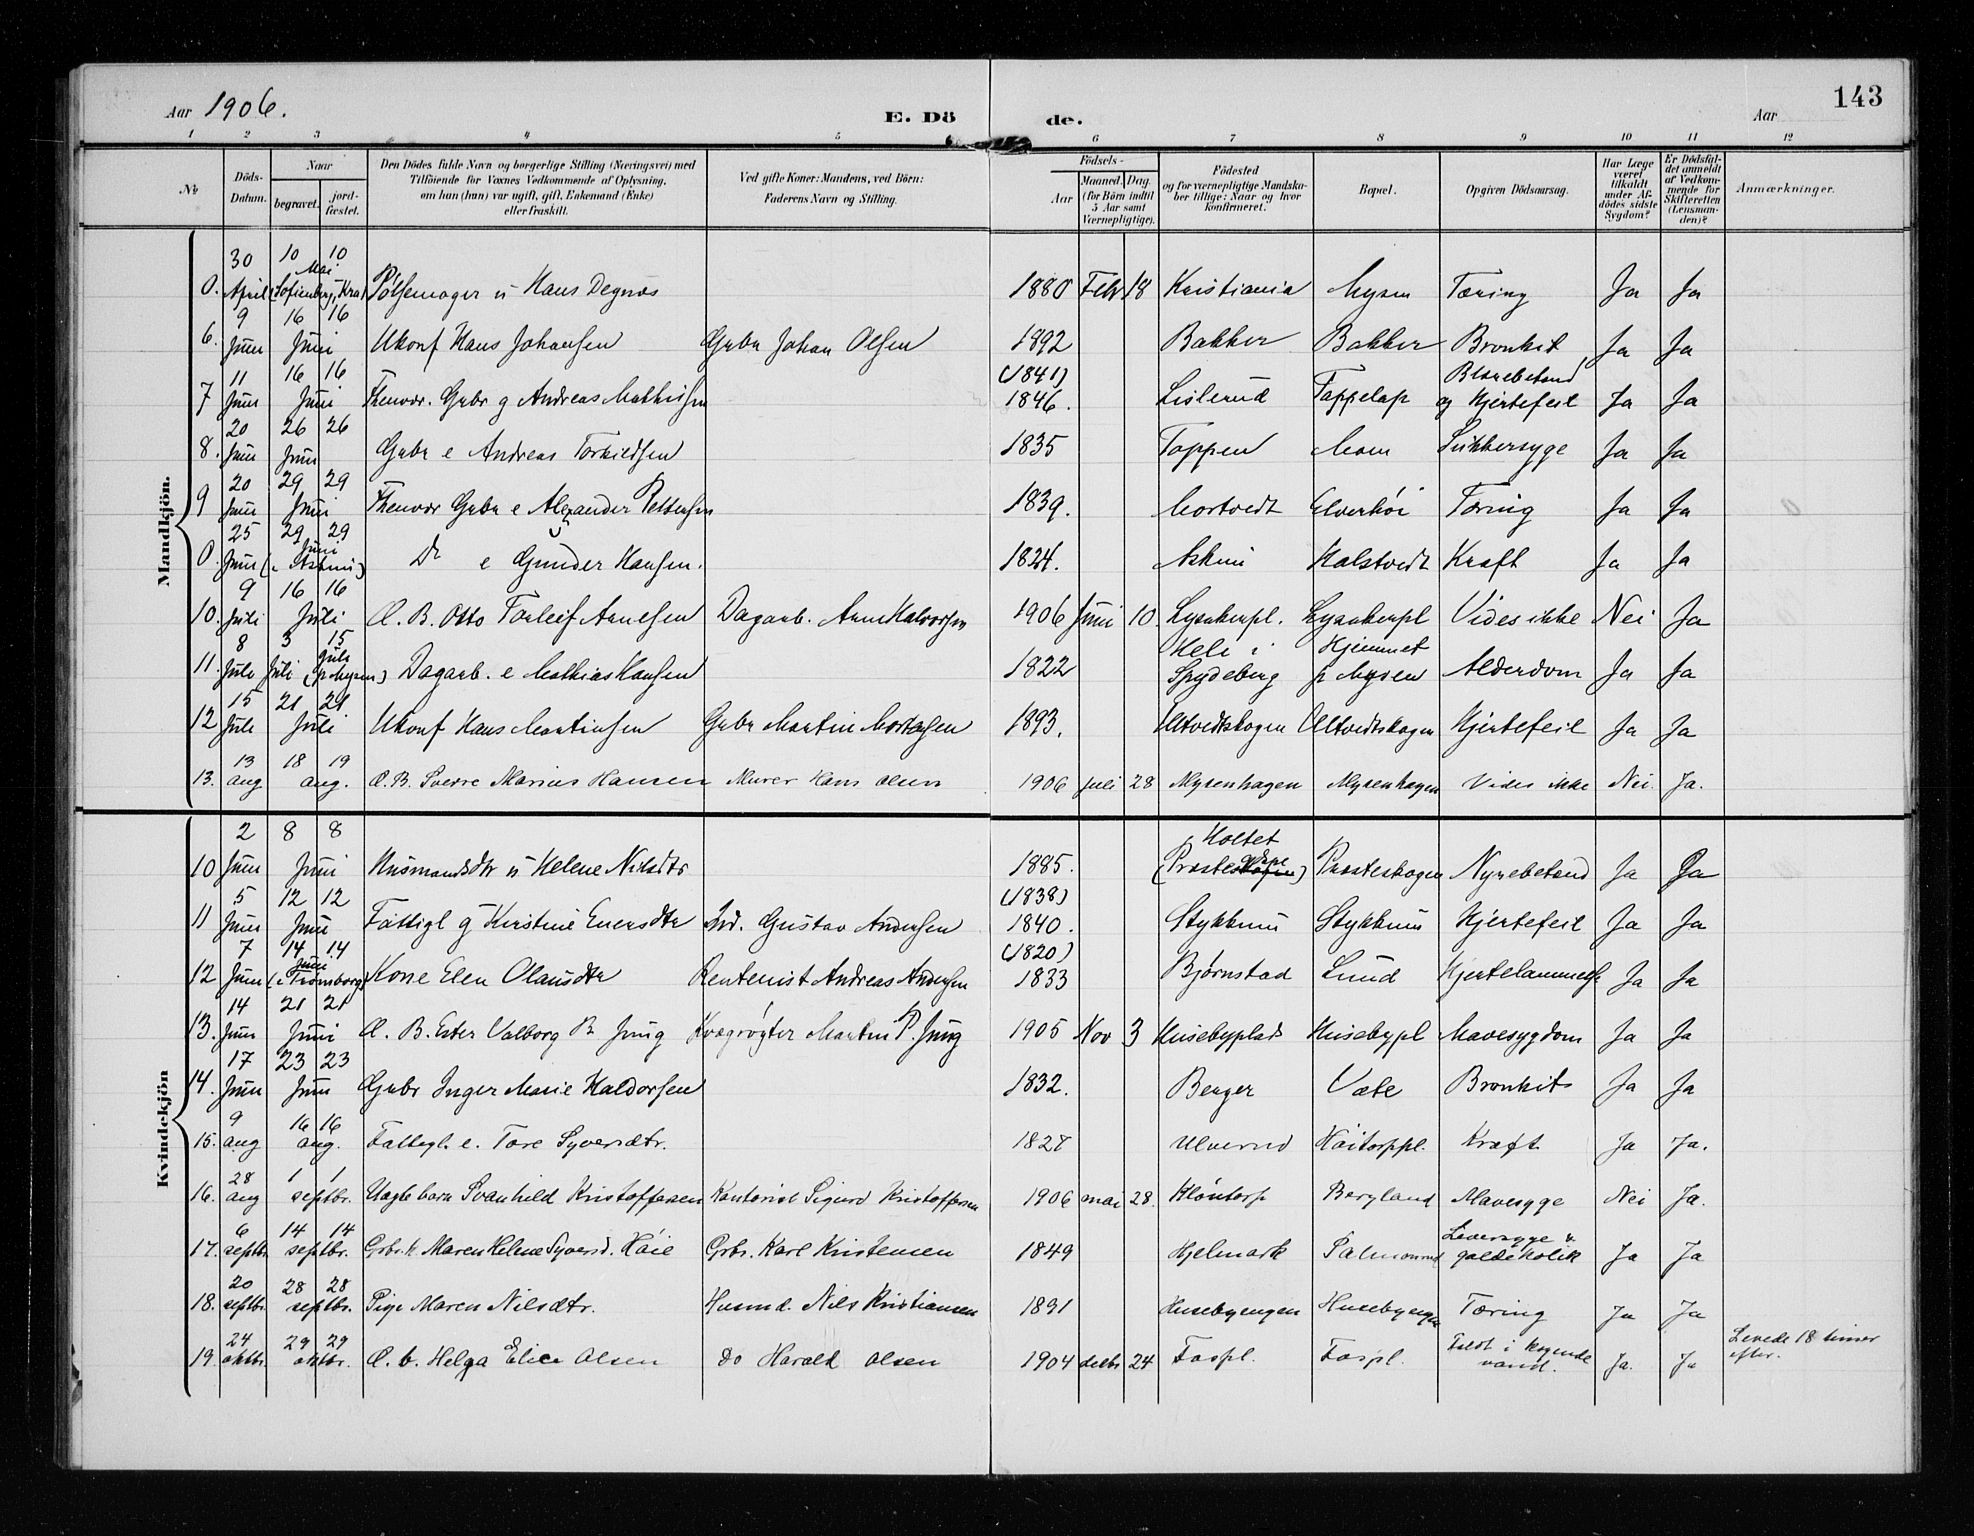 Aar 1906.
E. Dö de.
Aar
143
1 2 3 4 5 6 7 8 9 10 11 12
No
Döds-Datum.
Naar
begravet.
jord-fæstet.
Den Dödes fulde Navn og borgerlige Stilling (Næringsvei) med
Tilföiende for Voxnes Vedkommende af Oplysning,
om han (hun) var ugift, gift, Enkemand (Enke)
eller fraskilt.
Ved gifte Koner: Mandens, ved Börn:
Faderens Navn og Stilling.
Födsels-
Aar
Maaned. Dag.
(for Börn indtil
5 Aar samt
Værnepligtige).
Födested
og for værnepligtige Mandska-
ber tillige: Naar og hvor
konfirmeret.
Bopæl.
Opgiven Dödsaarsag.
Har Læge
været
tilkaldt
under Af-
dödes sidste
Sygdom?
Er Dödsfal-
det anmeldt
af Vedkom-
mende for
Skifteretten
(Lensman-
den)?
Anmærkninger.
Mandkjön.
0. 30 April 10 10 Mai (Sofienberg, Kra) Pølsemager u Hans Degnæs 1880 Febr 18 Kristiania Mysen Tæring Ja Ja
6. 9 Juni 16 16 Juni Ukonf Hans Johansen Gubr Johan Olsen 1892 Bakker Bakker Bronkit Ja Ja
7 11 Juni 16 16 Juni Fhenvær. Gubr g Andreas Mathisen (1841) 1846. Lislerud Toppelap Blærebetænd og Hjertefeil Ja Ja
8. 20 Juni 26 26 Juni Gubr e Andreas Torkildsen 1835 Toppen Moen Sukkersyge Ja Ja
9 20 Juni 29 29 Juni Fhenvær Gubr e Alexander Pettersen 1839. Mortvedt Elverhöi Tæring Ja Ja
0. 25 Juni 29 29 Juni (i Askim) Do e Gunder Hansen. 1824. Askim Halstvedt Kræft Ja Ja
10. 9 Juli 16 16 Juli Æ. B. Otto Torleif Arnesen Dagarb. Arne Halvorsen 1906 Juni 10. Lysakerpl. Lysakerpl Vides ikke Nei Ja
11. 8 Juli 3 Juli 15 Juli (p Mysen) Dagarb. e Mathias Hansen 1822 Heli i Spydeberg Hjemmet p Mysen Alderdom Ja Ja
12 15 Juli 21 21 Juli Ukonf Hans Martinsen Gubr Martin Mortensen 1893. Ultvedtskogen Ultvedtskogen Hjertefeil Ja Ja
13. 13 aug 18 19 aug. Æ. B. Sverre Marius Hansen Murer Hans Olsen 1906 juli 28 Mysenhagen Mysenhagen Vides ikke Nei. Ja.
Kvindekjön
10 2 Juni 8 8 Juni Husmandsdtr u Helene Nilsdtr 1885. Holtet (Præsteskogen) Præsteskogen Nyrebetænd Ja Ja
11 5 Juni 12 12 Juni Fattigl g Kirstine Evensdtr Ind. Gustav Andersen (1838) 1840. Stykkuus Stykkuus Hjertefeil Ja Ja
12 7 Juni 14 14 Juni (i Trømborg) Kone Elen Olausdtr Rentenist Andreas Andersen (1820) 1833 Bjørnstad Lund Hjertelammelse Ja Ja
13. 14 Juni 21 21 Juni Æ. B. Ester Valborg B Jung Kvægrøgter Martin P. Jung 1905 Nov 3 Husebyplads Husebypl Mavesygdom Ja Ja
14. 17 Juni 23 23 Juni Gubr Inger Marie Haldorsen 1832. Berger Væte Bronkit Ja Ja
15. 9 aug 16 16 aug. Fattigl. e. Tore Syversdtr. 1827 Ulverud Höitorppl. Kræft Ja Ja.
16. 28 aug 1 1 septbr. Uægte barn Svanhild Kristoffersen Kontorist Sigurd Kristoffersen 1906 mai 28. Klöntorp Bergland Mavesyge Nei Ja.
17. 6 septbr. 14 14 septbr. Grbr. k. Maren Helene Syversd. Höie Grbr. Karl Kristensen 1849 Hjelmark Salmonrud Leversyge & galdekolik Ja Ja
18. 20 septbr. 28 28 septbr. Pige Maren Nilsdtr. Husmd. Nils Kristiansen 1891 Husebyengen Husebyengen Tæring Ja Ja
19. 24 oktbr. 29 29 oktbr. Æ. b. Helga Elise Olsen Do Harald Olsen 1904 decbr 24 Fospl. Fospl. Faldt i kogende vand. Ja. Ja Levede 18 timer efter.